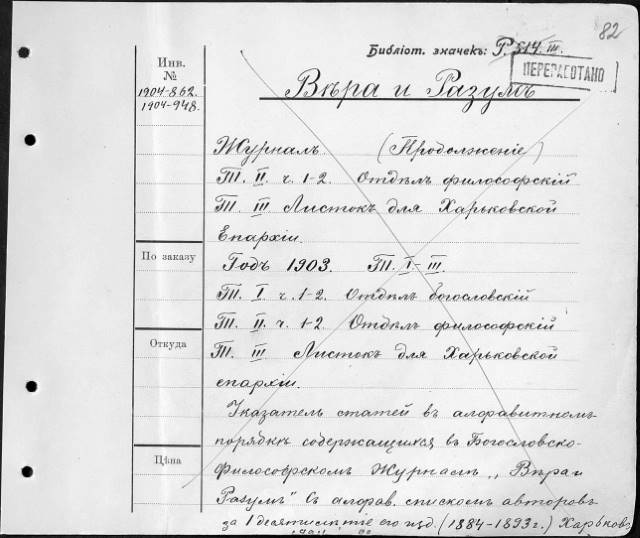 82
Библіот. значекъ: Р. 514. III.
ПЕРЕРАБОТАНО
Инв.
№
1904-862.
1904-948.
Вѣра и Разумъ
Журналъ (Продолженіе)
Т. II. ч. 1-2. Отдѣлъ философскій
Т. III Листокъ для Харьковской
Епархіи.
По заказу
Годъ 1903. Т. I-III.
Т. I ч. 1-2. Отдѣлъ богословскій
Т. II. ч. 1-2 Отдѣлъ философскій
Откуда
Т. III Листокъ для Харьковской
епархіи.
Указатель статей въ алфавитномъ
порядкѣ содержащихся въ Богословско-
Цѣна
философскомъ Журналѣ „Вѣра и
Разумъ" съ алфав. спискомъ авторовъ
за 1 десятилѣтіе его изд. (1884-1893 г.) Харьковъ